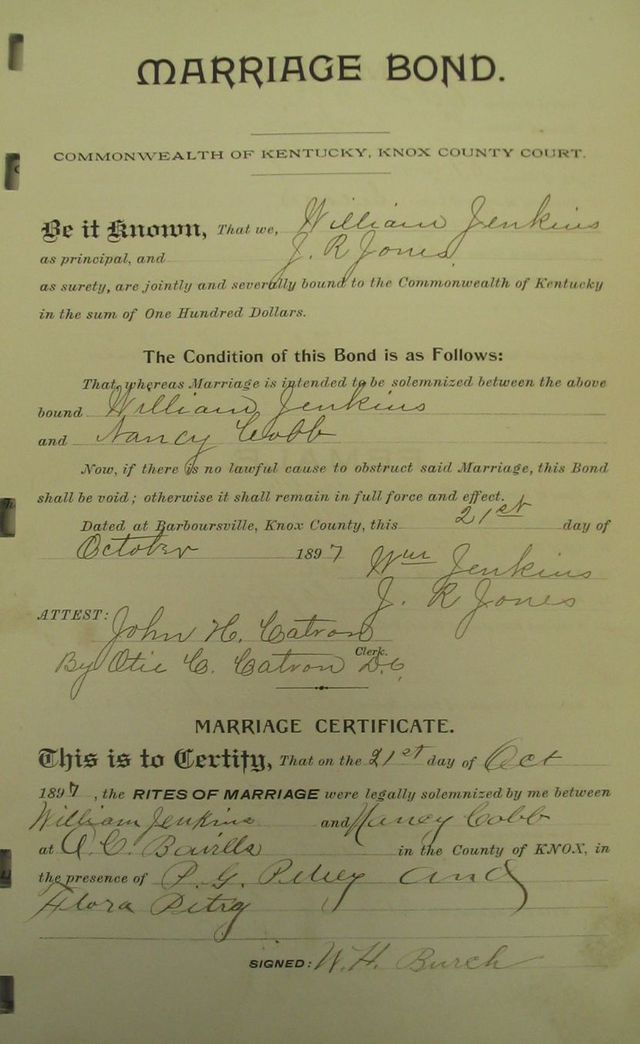 MARRIAGE BOND.
COMMONWEALTH OF KENTUCKY, KNOX COUNTY COURT.
Be it Known, That we, William Jenkins
as principal, and J. R Jones
as surety, are jointly and severally bound to the Commonwealth of Kentucky
in the sum of One Hundred Dollars.
The Condition of this Bond is as Follows:
That whereas Marriage is intended to be solemnized between the above
bound William Jenkins
and Nancy Cobb
Now, if there is no lawful cause to obstruct said Marriage, this Bond
shall be void; otherwise it shall remain in full force and effect.
Dated at Barboursville, Knox County, this 21st day of
October 1897
Wm Jenkins
J. R Jones
ATTEST: John H. Catron
Clerk.
By Otie C. Catron D.C.
MARRIAGE CERTIFICATE.
This is to Certify, That on the 21st day of Oct
1897, the RITES OF MARRIAGE were legally solemnized by me between
William Jenkins and Nancy Cobb
at in the County of KNOX, in
the presence of P. G. and
Flora Petry
SIGNED: W. H. Burch